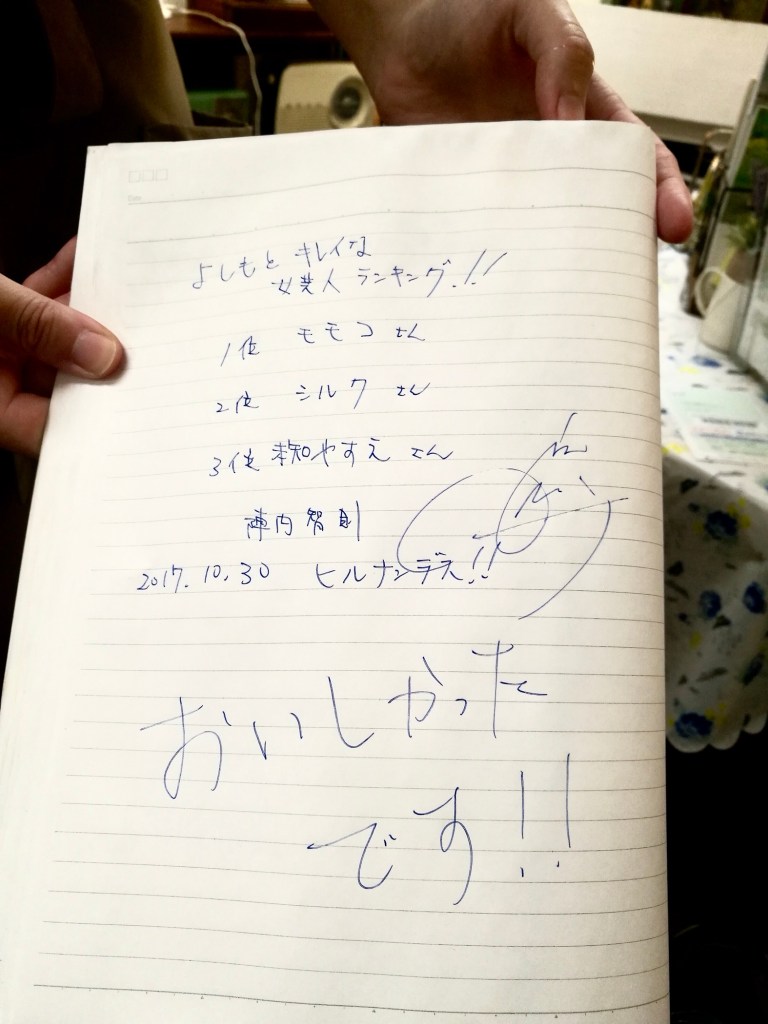 よしもと キレイな
女芸人 ランキング!!
1位 モモコ さん
2位 シルク さん
3位 未知やすえ さん
陣内智則
2017.10.30 ヒルナンデス!!
おいしかった
です!!